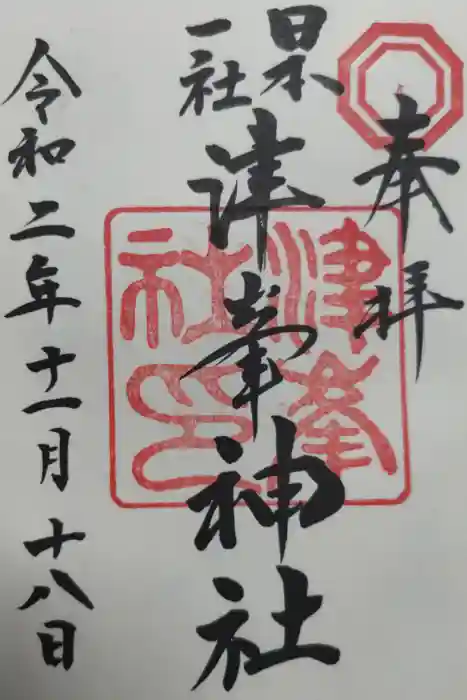 奉拝
日本
一社
津峯神社
津峯
社印
令和二年十一月十八日